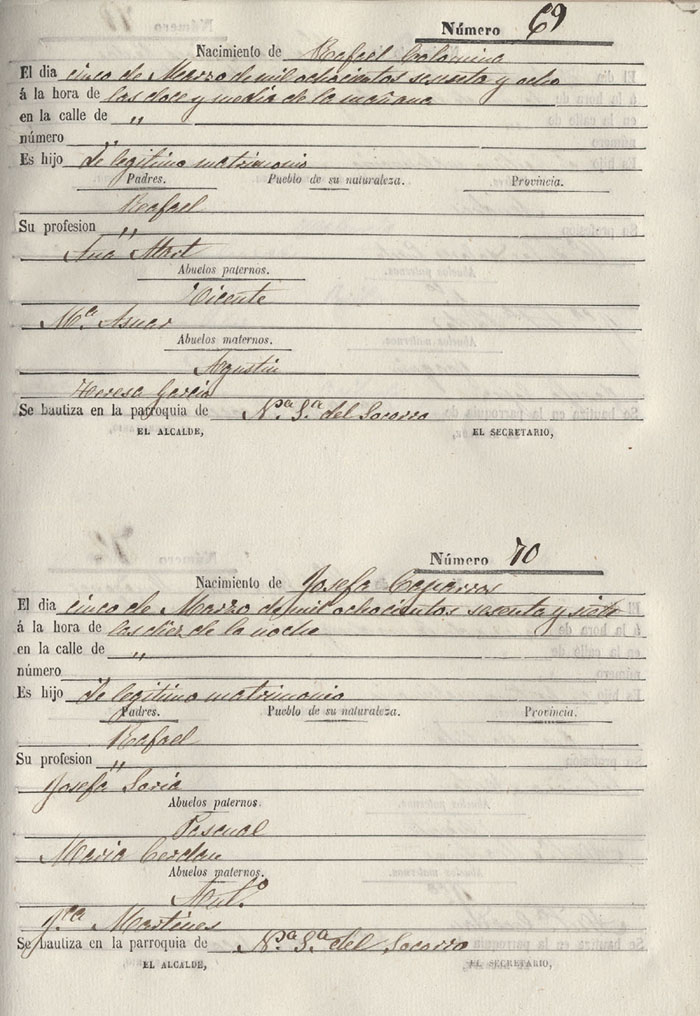 Número 69
Nacimiento de Rafael Colomina
El dia cinco de Marzo de mil ochocientos sesenta y ocho
á la hora de las doce y media de la mañana
en la calle de "
número
Es hijo de legitimo matrimonio
Padres. Pueblo de su naturaleza. Provincia.
Rafael
Su profesion "
Ana Mart
Abuelos paternos.
Vicente
Mª Asnar
Abuelos maternos.
Agustin
Teresa Garcia
Se bautiza en la parroquia de Nª Sª del Socorro
EL ALCALDE, EL SECRETARIO,
Número 70
Nacimiento de Josefa Caparros
El dia cinco de Marzo de mil ochocientos sesenta y siete
á la hora de las diez de la noche
en la calle de "
número
Es hijo de legitimo matrimonio
Padres. Pueblo de su naturaleza. Provincia.
Rafael
Su profesion "
Josefa Soria
Abuelos paternos.
Pascual
Maria Cerdan
Abuelos maternos.
Martines
Se bautiza en la parroquia de Nª Sª del Socorro
EL ALCALDE, EL SECRETARIO,